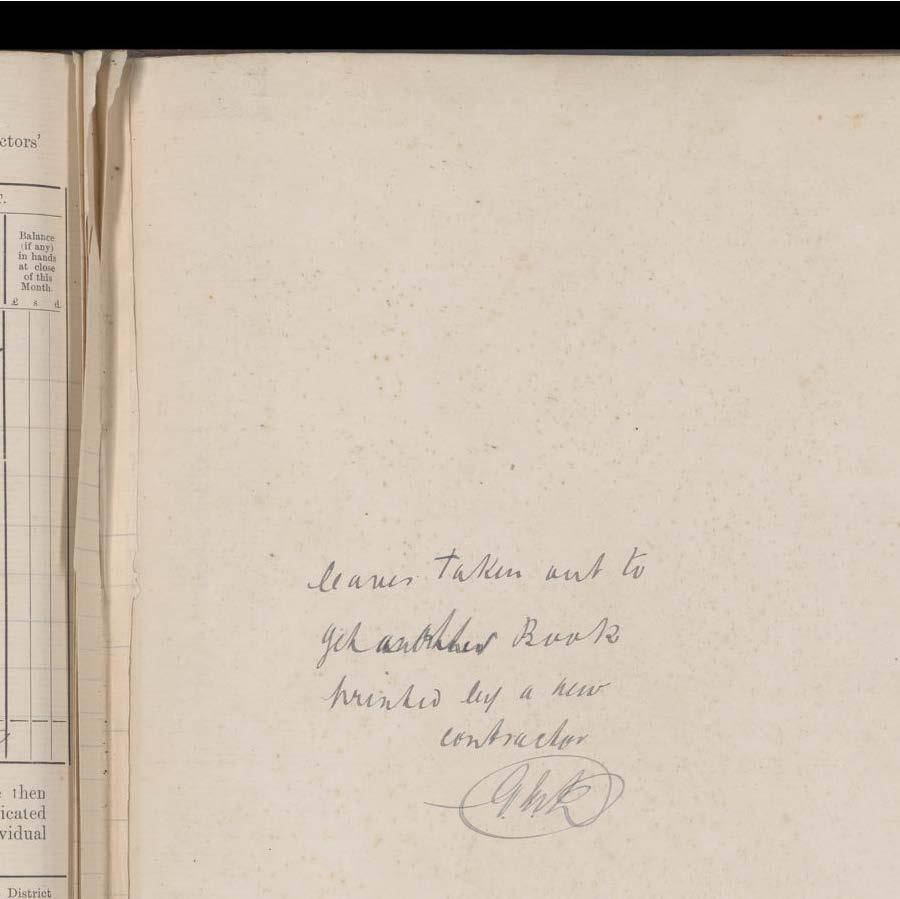 ctors'
T.
Balance
(if any)
in hands
at close
of this
Month.
£ s d.
leaves taken out to
get another Book
printed by a new
contractor
e then
icated
vidual
District